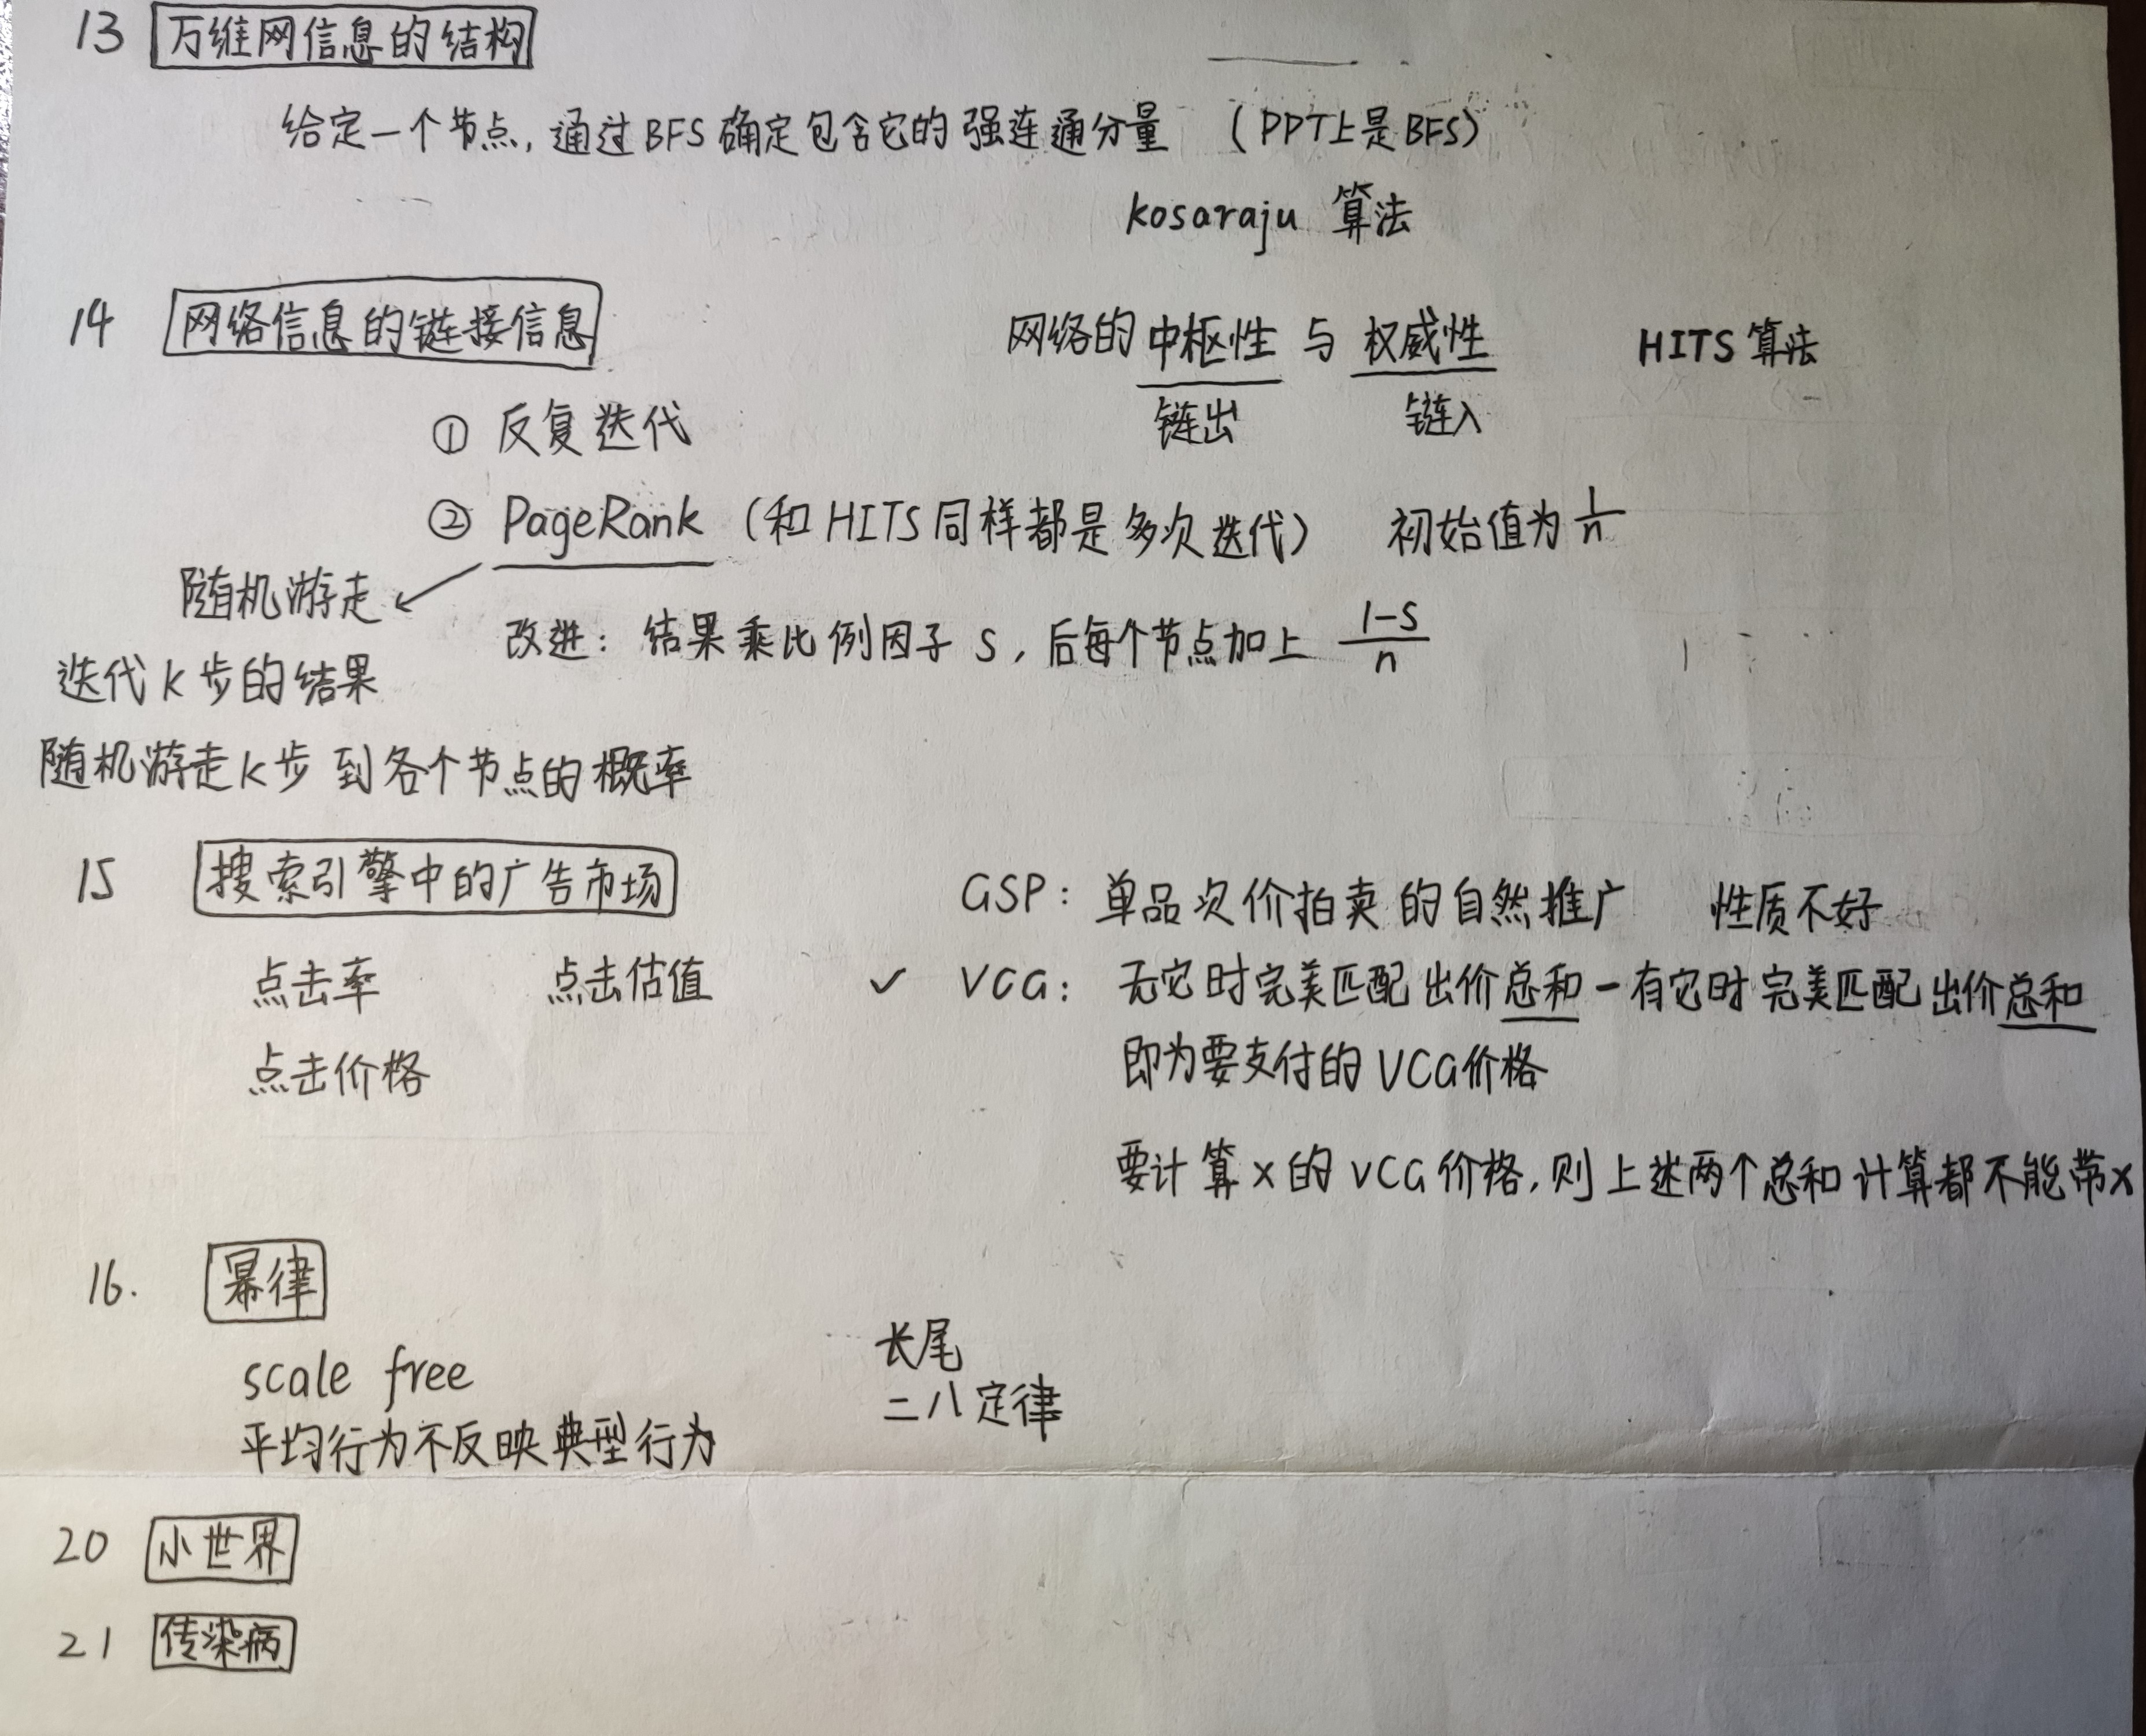 13 万维网信息的结构
给定一个节点, 通过BFS 确定包含它的强连通分量 (PPT上是BFS)
kosaraju 算法
14 网络信息的链接信息 网络的中枢性 与 权威性 HITS 算法
链出 链入
① 反复迭代
② PageRank (和HITS同样都是多次迭代) 初始值为 1/n
随机游走
改进: 结果乘比例因子 s, 后每个节点加上 (1-s)/n
迭代 k 步的结果
随机游走k步 到各个节点的概率
15 搜索引擎中的广告市场 GSP: 单品次价拍卖的自然推广 性质不好
点击率 点击估值 ✓ VCG: 无它时完美匹配出价总和 - 有它时完美匹配出价总和
点击价格 即为要支付的 VCG价格
要计算 x 的 VCG 价格, 则上述两个总和计算都不能带x
16. 幂律
scale free 长尾
平均行为不反映典型行为 二八定律
20 小世界
21 传染病